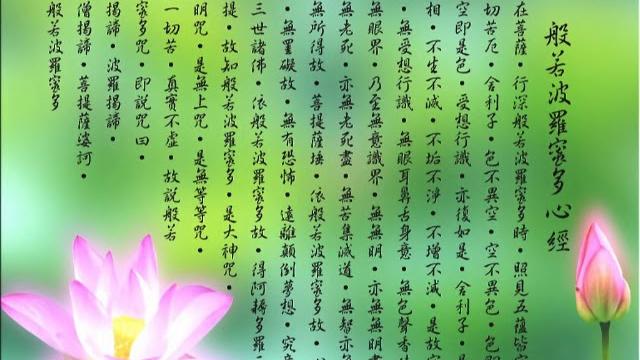 般若波羅蜜多心經
在菩薩・行深般若波羅蜜多時・照見五蘊皆空
切苦厄・舍利子・色不異空・空不異色・色即
空即是色・受想行識・亦復如是・舍利子・是
相・不生不滅・不垢不淨・不增不減・是故空
・無受想行識・無眼耳鼻舌身意・無色聲香味
無眼界・乃至無意識界・無無明・亦無無明盡
無老死・亦無老死盡・無苦集滅道・無智亦無
無所得故・菩提薩埵・依般若波羅蜜多故・
・無罣礙故・無有恐怖・遠離顛倒夢想・究竟
三世諸佛・依般若波羅蜜多故・得阿耨多羅三
提・故知般若波羅蜜多・是大神咒・
明咒・是無上咒・是無等等咒・
一切苦・真實不虛・故說般若
蜜多咒・即說咒曰・
揭諦・波羅揭諦・
僧揭諦・菩提薩婆訶・
般若波羅蜜多